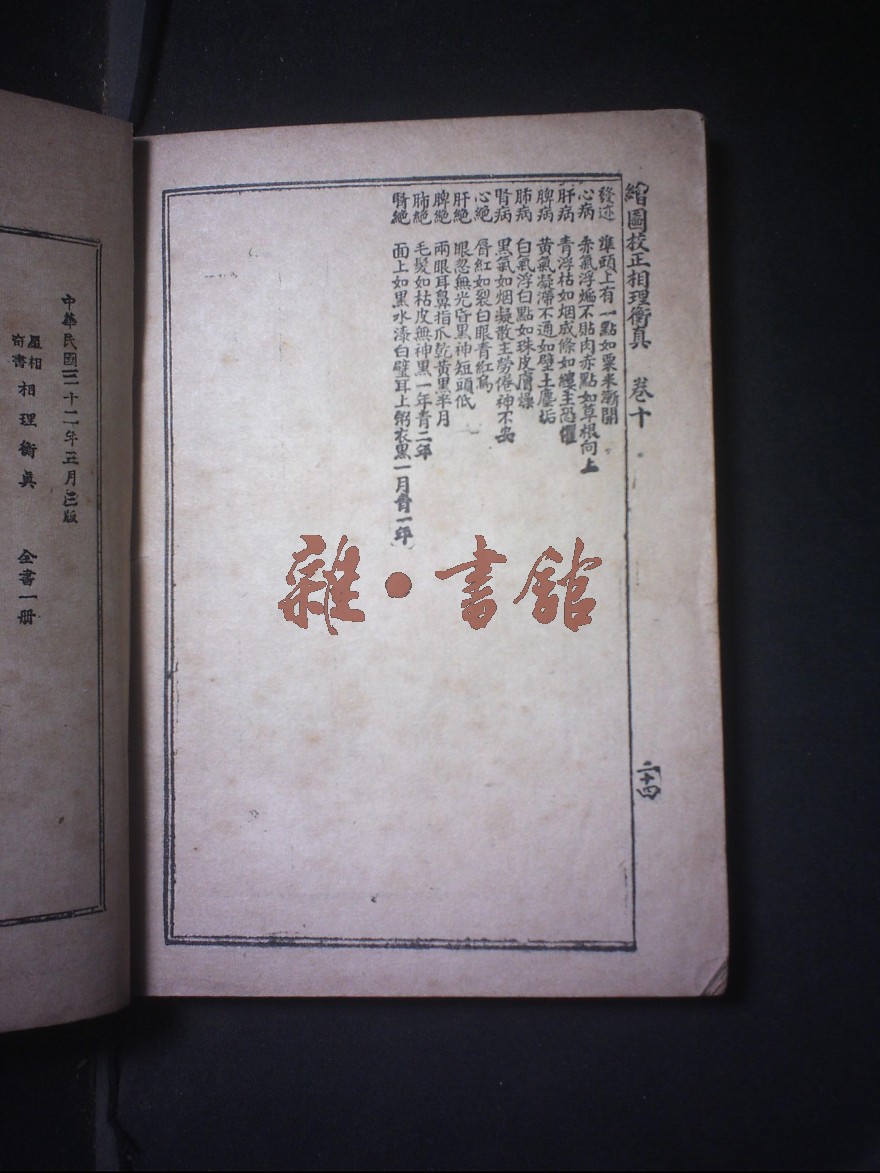 繪圖校正相理衡真 卷十
二十四
發迹 準頭上有一點如粟米漸開
心病 赤氣浮煸不貼肉赤點如草根向上
肝病 青浮枯如烟成條如纏主恐懼
脾病 黄氣凝滯不通如壁土塵垢
肺病 白氣浮白點如珠皮膚燥
腎病 黑氣如烟凝散主勞倦神不安
心絶 唇紅如裂白眼青紅烏
肝絶 眼忽無光昏黑神短頭低
脾絶 兩眼耳鼻指爪乾黄黑半月
肺絶 毛髮如枯皮無神黑一年青二年
腎絶 面上如黑水漆白璧耳上弼衣黑一月青一年
雜·書館
中華民國三十二年五月三版
星相奇書 相理衡真 全書一册